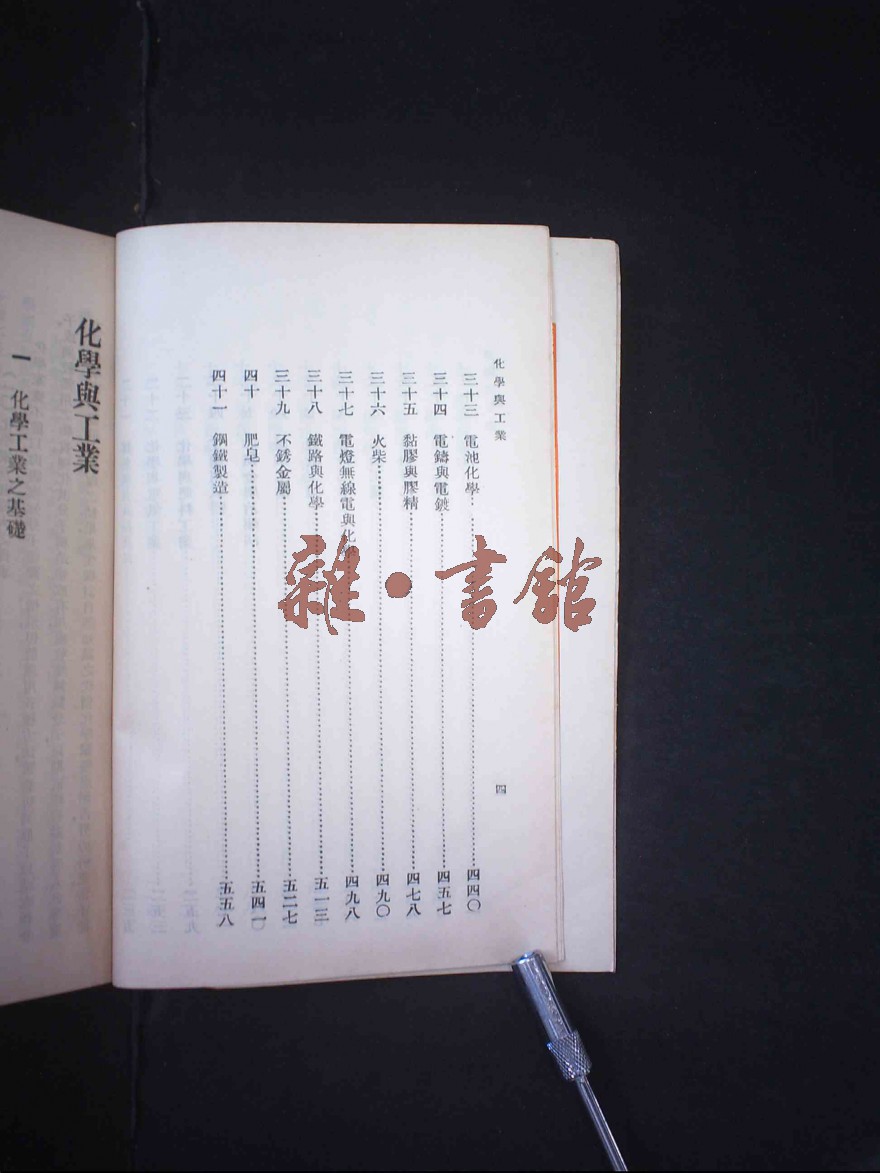 化學與工業
四
三十三 電池化學 四四〇
三十四 電鑄與電鍍 四五七
三十五 黏膠與膠精 四七八
三十六 火柴 四九〇
三十七 電燈無線電與化 四九八
三十八 鐵路與化學 五一三
三十九 不銹金屬 五二七
四十 肥皂 五四一
四十一 鋼鐵製造 五五八
化學與工業
一 化學工業之基礎
雜·書館